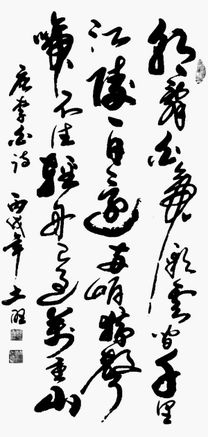 朝辭白帝彩雲間千里
江陵一日還兩岸猿聲
啼不住輕舟已過萬重山
唐李白詩 丙戌年